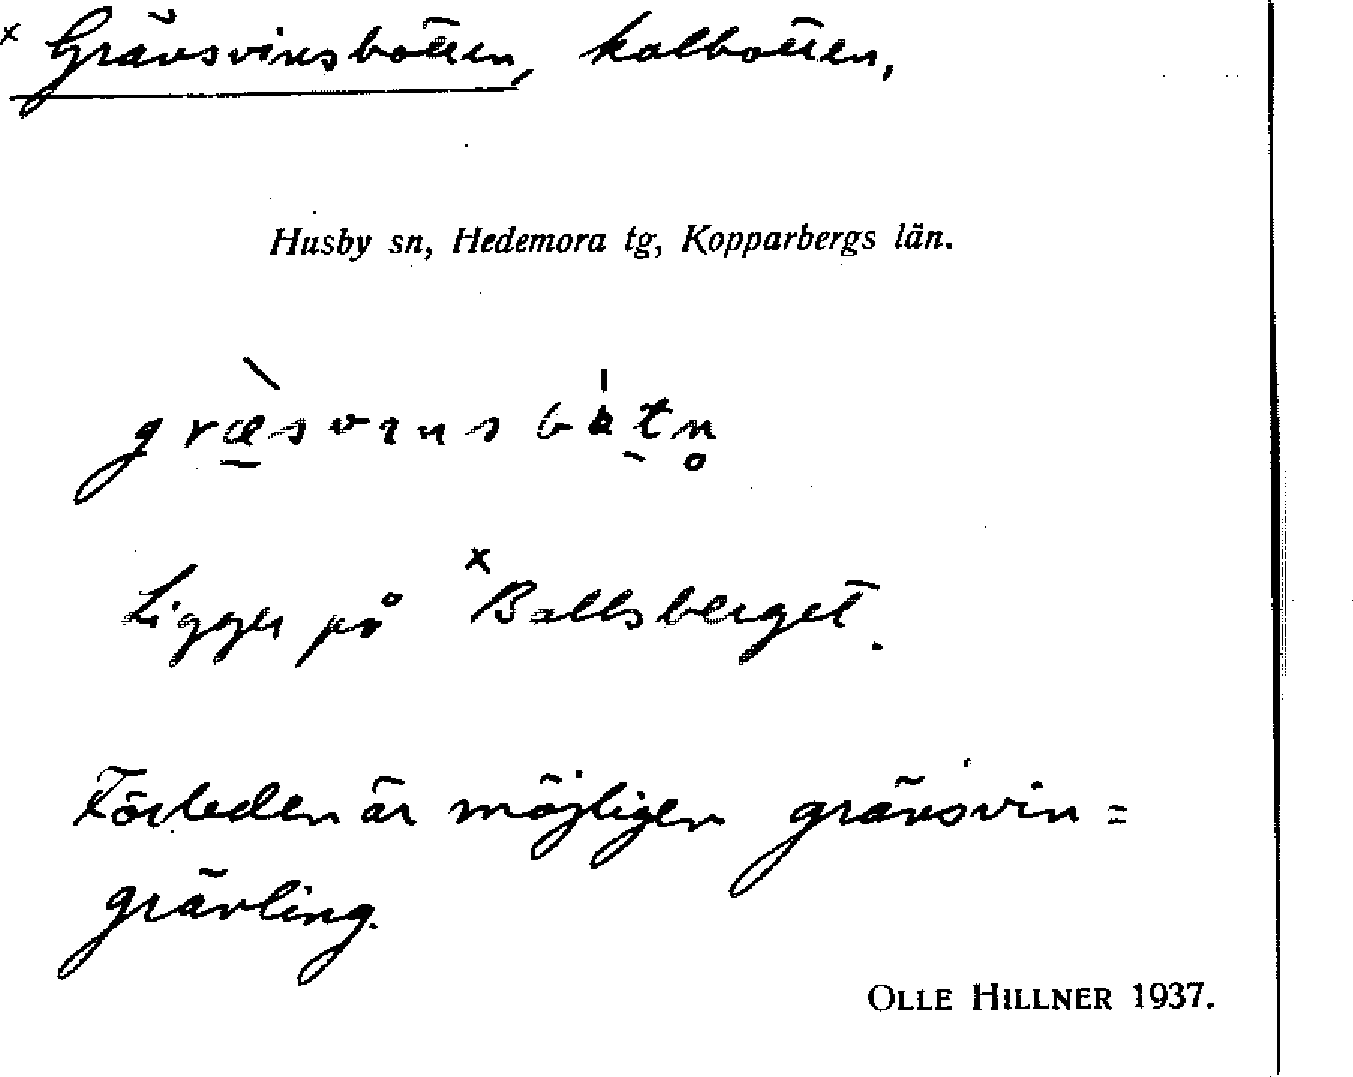 x Grävsvinsbotten, kolbotten,
Husby sn, Hedemora tg, Kopparbergs län.
Ligger på x Ballsberget.
Förleden är möjligen grävsvin =
grävling.
OLLE HILLNER 1937.